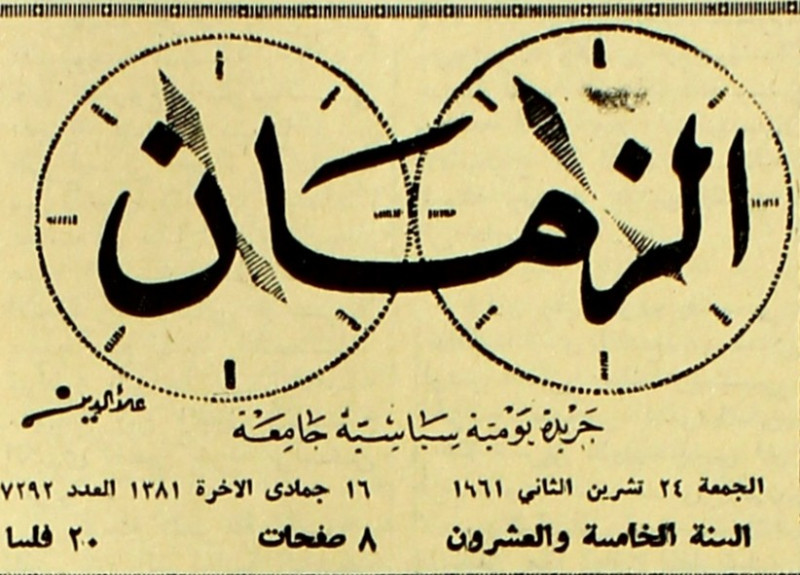 الزمان
علاء الدين
جريدة يومية سياسية جامعة
الجمعة ٢٤ تشرين الثاني ١٩٦١ ١٦ جمادى الاخرة ١٣٨١ العدد ٧٢٩٢
السنة الخامسة والعشرون ٨ صفحات ٢٠ فلسا